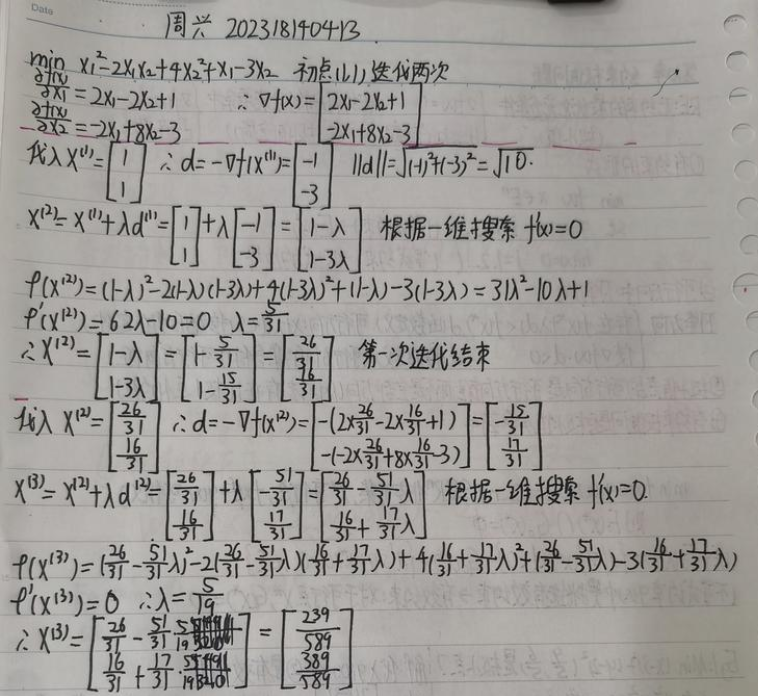 Date
周兴 20231814041­3
min x₁²-2x₁x₂+4x₂²+x₁-3x₂ 初点(1,1)迭代两次
∂f(x)/∂x₁=2x₁-2x₂+1 ∴∇f(x)=[2x₁-2x₂+1; -2x₁+8x₂-3]
∂f(x)/∂x₂=-2x₁+8x₂-3
代入X⁽¹⁾=[1; 1] ∴d=-∇f(x⁽¹⁾)=[-1; -3] ||d||=√((-1)²+(-3)²)=√10.
X⁽²⁾=X⁽¹⁾+λd⁽¹⁾=[1; 1]+λ[-1; -3]=[1-λ; 1-3λ] 根据一维搜索 f'(x)=0
f(x⁽²⁾)=(1-λ)²-2(1-λ)(1-3λ)+4(1-3λ)²+(1-λ)-3(1-3λ)=31λ²-10λ+1
f'(x⁽²⁾)=62λ-10=0 λ=5/31
∴X⁽²⁾=[1-λ; 1-3λ]=[1-5/31; 1-15/31]=[26/31; 16/31] 第一次迭代结束
代入 X⁽²⁾=[26/31; 16/31] ∴d=-∇f(x⁽²⁾)=[-(2×26/31-2×16/31+1); -(-2×26/31+8×16/31-3)]=[-15/31; 17/31]
X⁽³⁾=X⁽²⁾+λd⁽²⁾=[26/31; 16/31]+λ[-51/31; 17/31]=[26/31-51/31λ; 16/31+17/31λ] 根据一维搜索 f'(x)=0.
f(x⁽³⁾)=(26/31-51/31λ)²-2(26/31-51/31λ)(16/31+17/31λ)+4(16/31+17/31λ)²+(26/31-51/31λ)-3(16/31+17/31λ)
f'(x⁽³⁾)=0 ∴λ=5/19
∴X⁽³⁾=[26/31-51/31·5/19; 16/31+17/31·5/19]=[239/589; 389/589]